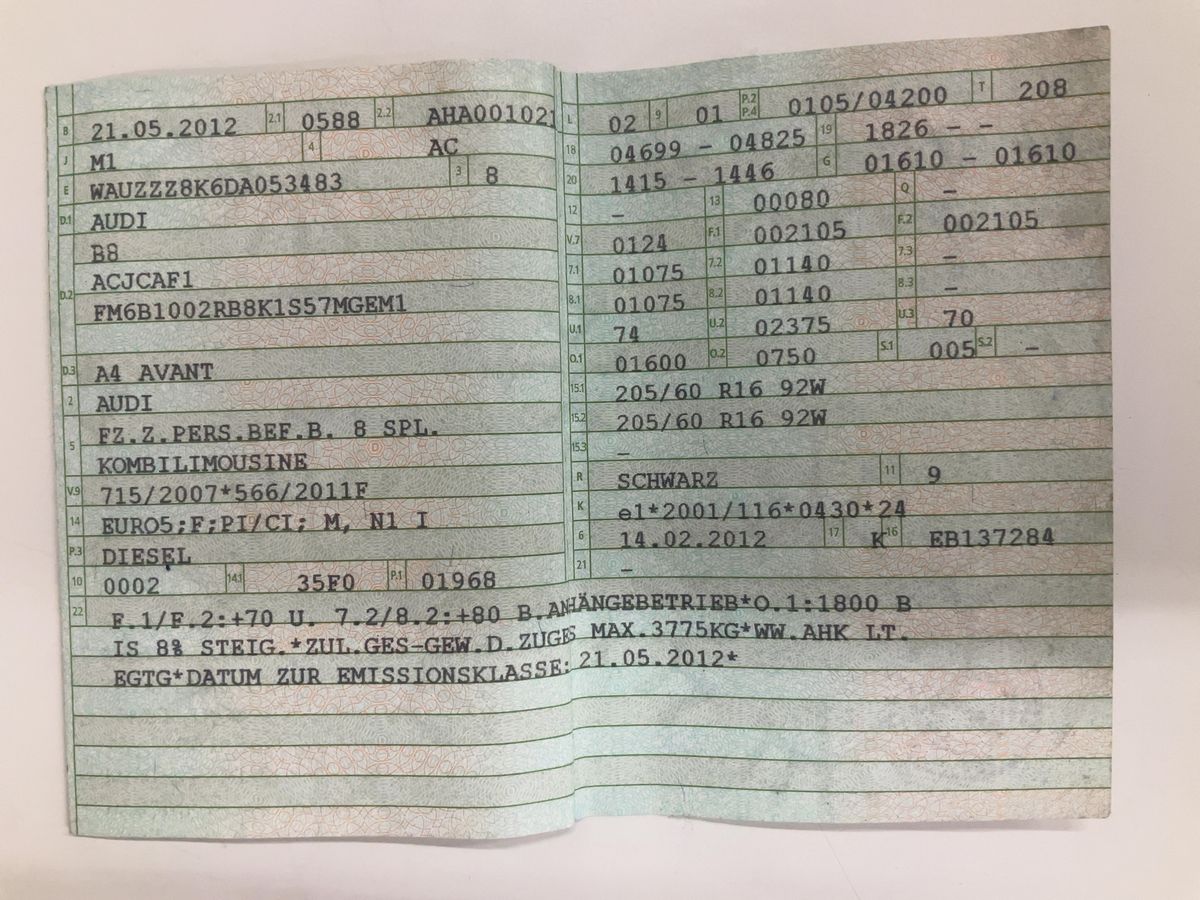 B 21.05.2012 2.1 0588 2.2 AHA001021
J M1 4 AC
E WAUZZZ8K6DA053483 3 8
D.1 AUDI
B8
D.2 ACJCAF1
FM6B1002RB8K1S57MGEM1
D.3 A4 AVANT
2 AUDI
5 FZ.Z.PERS.BEF.B. 8 SPL.
KOMBILIMOUSINE
V.9 715/2007*566/2011F
14 EURO5;F;PI/CI; M, N1 I
P.3 DIESEL
10 0002 14.1 35F0 P.1 01968
L 02 9 01 P.2 P.4 0105/04200 T 208
18 04699 - 04825 19 1826 - -
20 1415 - 1446 G 01610 - 01610
12 - 13 00080 Q -
V.7 0124 F.1 002105 F.2 002105
7.1 01075 7.2 01140 7.3 -
8.1 01075 8.2 01140 8.3 -
U.1 74 U.2 02375 U.3 70
O.1 01600 O.2 0750 S.1 005 S.2 -
15.1 205/60 R16 92W
15.2 205/60 R16 92W
15.3 -
R SCHWARZ 11 9
K e1*2001/116*0430*24
6 14.02.2012 17 K 16 EB137284
21 -
22 F.1/F.2:+70 U. 7.2/8.2:+80 B.ANHÄNGEBETRIEB*O.1:1800 B
IS 8% STEIG.*ZUL.GES-GEW.D.ZUGES MAX.3775KG*WW.AHK LT.
EGTG*DATUM ZUR EMISSIONSKLASSE: 21.05.2012*